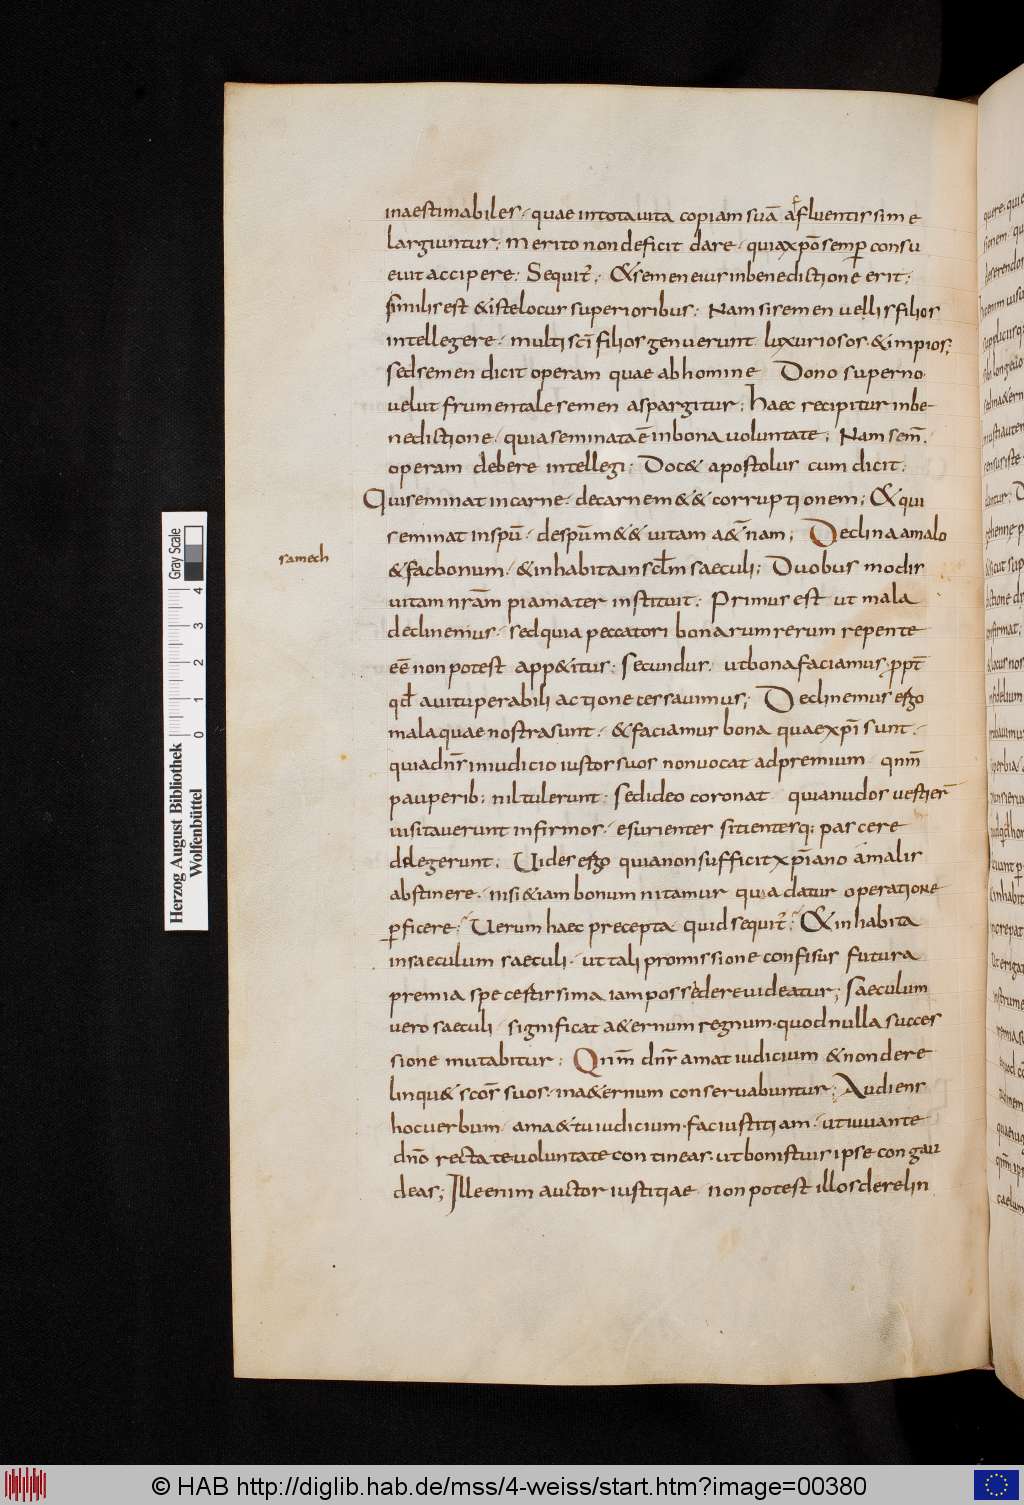 inaestimabiles. quae intota uita copiam suā affluentissime
largiuntur. Merito non deficit dare. quia xpō semp̄ consu
euit accipere. Sequit̄. & semen eius inbenedictione erit.
similis est & iste locus superioribus. Nam si semen uellis filios
intellegere. multi sc̄i filios genuerunt luxuriosos. & impios;
sed semen dicit operam quae ab homine Dono superno
uelut frumentale semen aspargitur; haec recipitur inbe-
nedictione. quia seminata ē inbona uoluntate; Nam sem̄.
operam debere intellegi; Doc& apostolus cum dicit;
Qui seminat incarne. decarne m&& corruptionem; & qui
seminat inspū. despū m&& uitam a&̄nam; Declina amalo
samech
& fac bonum. & inhabita in sc̄lm saeculi; Duobus modis
uitam nr̄am pia mater instituit. Primus est ut mala
declinemus. sed quia peccatori bonarum rerum repente
eē non potest app&itus; secundus. ut bona faciamus. ppt̄
qd̄ auituperabili actione cessauimus; Declinemus ergo
mala quae nostra sunt. & faciamus bona quae xp̄i sunt.
quia dn̄s in iudicio iustos suos non uocat ad premium qnm̄
pauperib; nil tulerunt. sed ideo coronat quia nudos uestier̄
uisitauerunt infirmos. esurientes sitientesq; pascere
delegerunt; Uides ergo quia non sufficit xp̄iano amalis
abstinere. nisi & iam bonum nitamur quia datur operatione
p̄ficere; Uerum haec precepta quid sequit̄; & inhabita
insaeculum saeculi. ut tali promissione confisus futura
premia spe certissima iam possedere uideatur; saeculum
uero saeculi significat a&ernum regnum. quod nulla succes
sione mutabitur; Qnm̄ dn̄s amat iudicium & non dere
linqu& sc̄os suos. in a&ernum conseruabuntur; Audiens
hoc uerbum. ama & tu iudicium. fac iustitiam. ut iuuante
dn̄o recta te uoluntate contineas. ut bonis tuis ipse congau
deas; Ille enim auctor iustitiae non potest illos derelin
Gray Scale
0 1 2 3 4
Herzog August Bibliothek
Wolfenbüttel
© HAB http://diglib.hab.de/mss/4-weiss/start.htm?image=00380